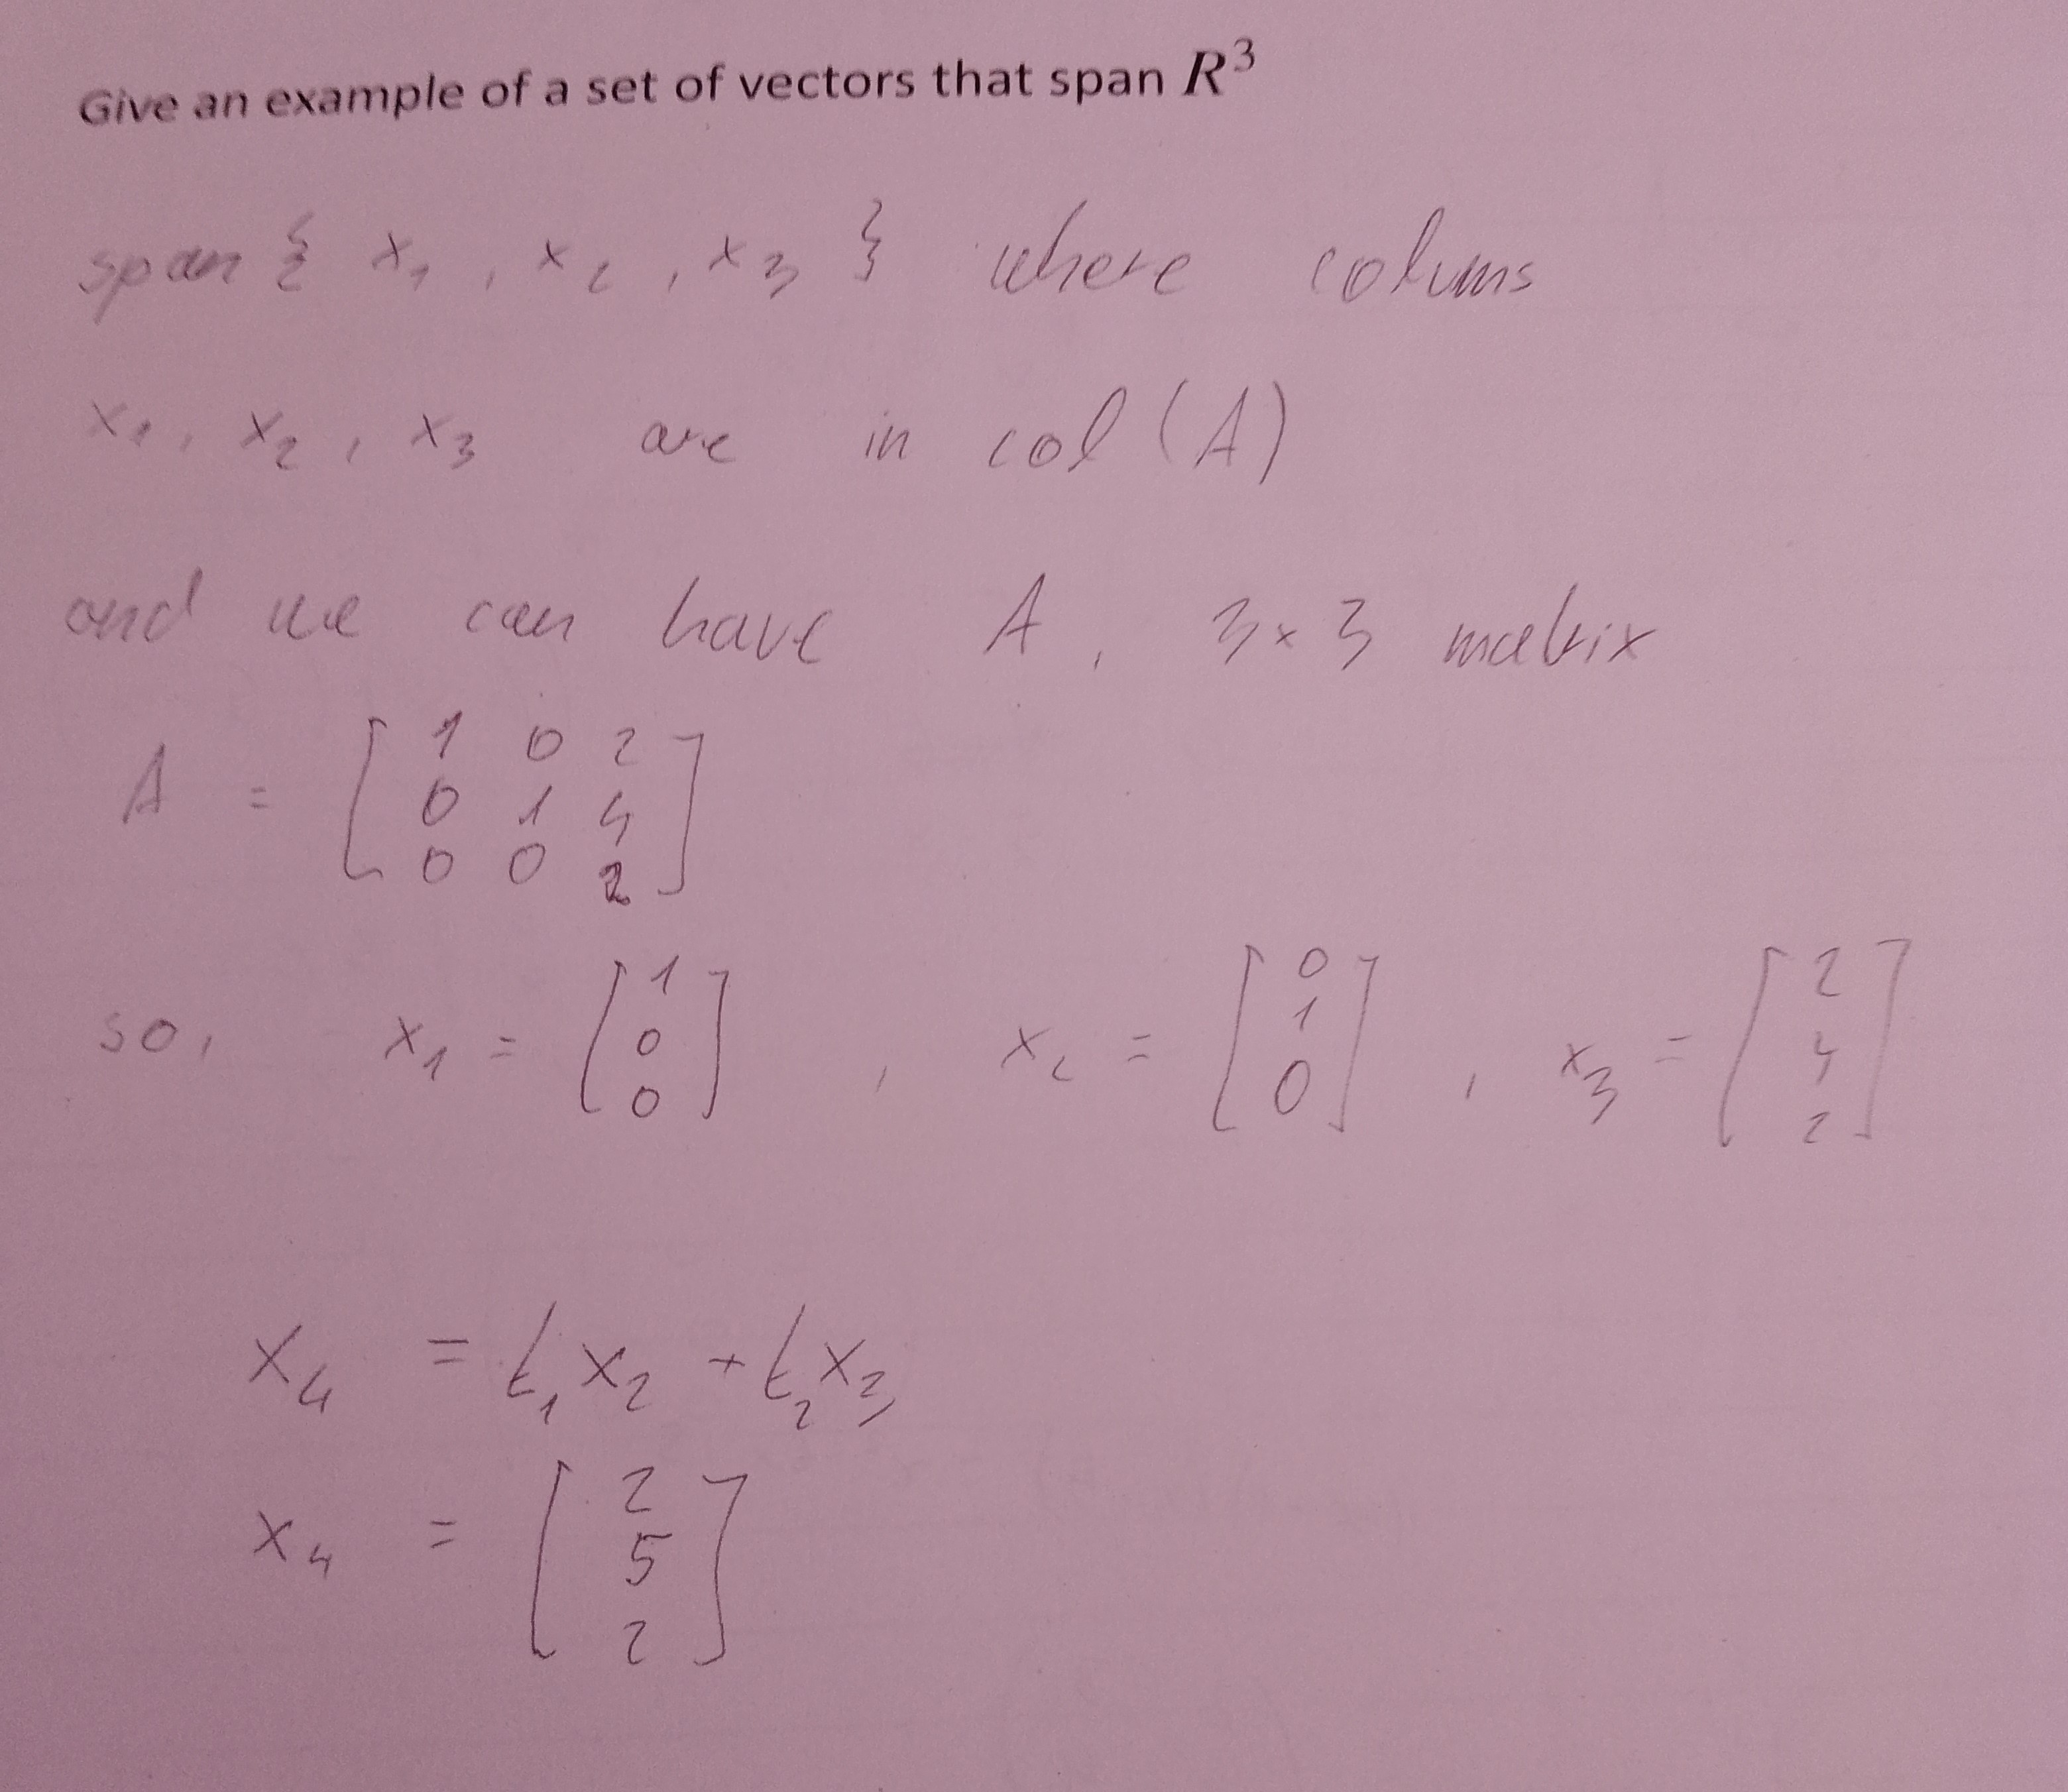 Give an example of a set of vectors that span R³
span { x₁ , x₂ , x₃ } where colums
x₁ , x₂ , x₃ are in col (A)
and we can have A , 3×3 matrix
A = [ 1 0 2
0 1 4
0 0 2 ]
so, x₁ = [ 1 0 0 ] , x₂ = [ 0 1 0 ] , x₃ = [ 2 4 2 ]
x₄ = t₁ x₂ + t₂ x₃
x₄ = [ 2 5 2 ]